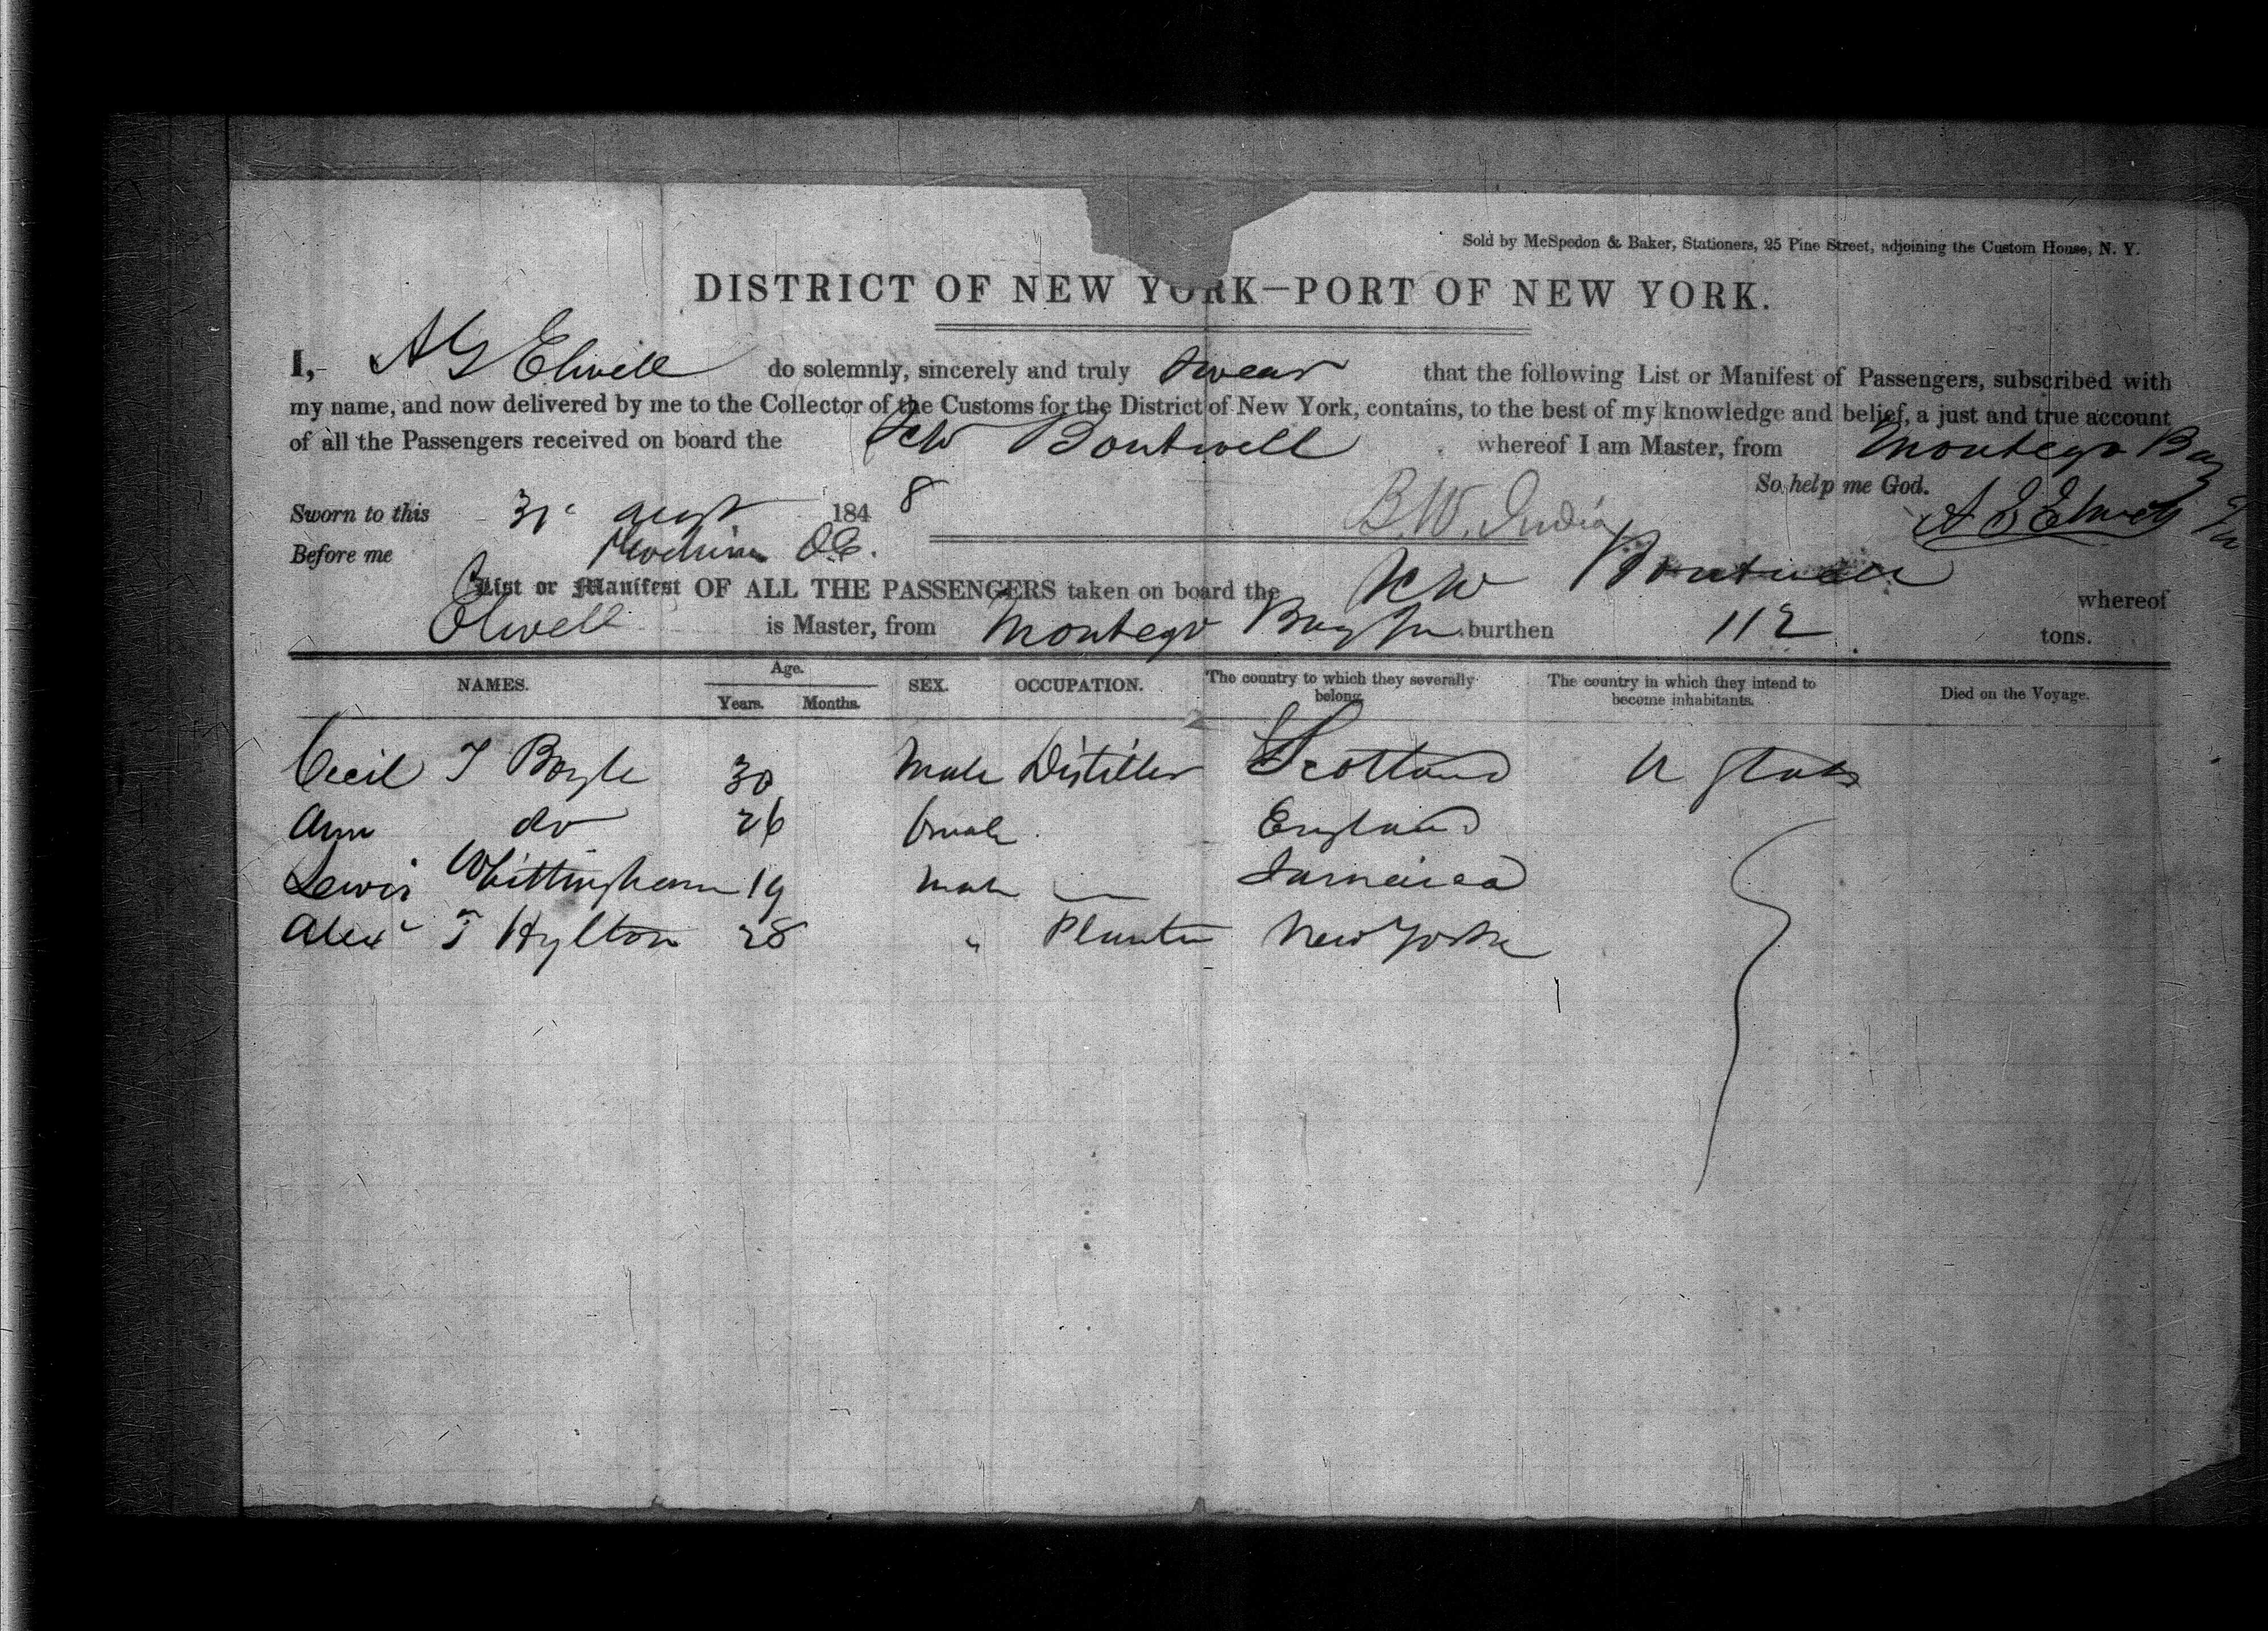 Sold by McSpedon & Baker, Stationers, 25 Pine Street, adjoining the Custom House, N. Y.
DISTRICT OF NEW YORK—PORT OF NEW YORK.
I, A G Elwell do solemnly, sincerely and truly swear that the following List or Manifest of Passengers, subscribed with
my name, and now delivered by me to the Collector of the Customs for the District of New York, contains, to the best of my knowledge and belief, a just and true account
of all the Passengers received on board the Boutwell whereof I am Master, from Montego Bay
So help me God.
Sworn to this 31 augt 1848 B.W. India A G Elwell
Before me
List or Manifest OF ALL THE PASSENGERS taken on board the Boutwell whereof
Elwell is Master, from Montego Bay Ja burthen 112 tons.
NAMES. Age. Years. Months. SEX. OCCUPATION. The country to which they severally belong. The country in which they intend to become inhabitants. Died on the Voyage.
Cecil T Boyle 30 Male Distiller Scotland U States
Ann do 26 female England
Lewis Whittingham 19 male — Jamaica
Alexr T Hylton 28 " Planter New York